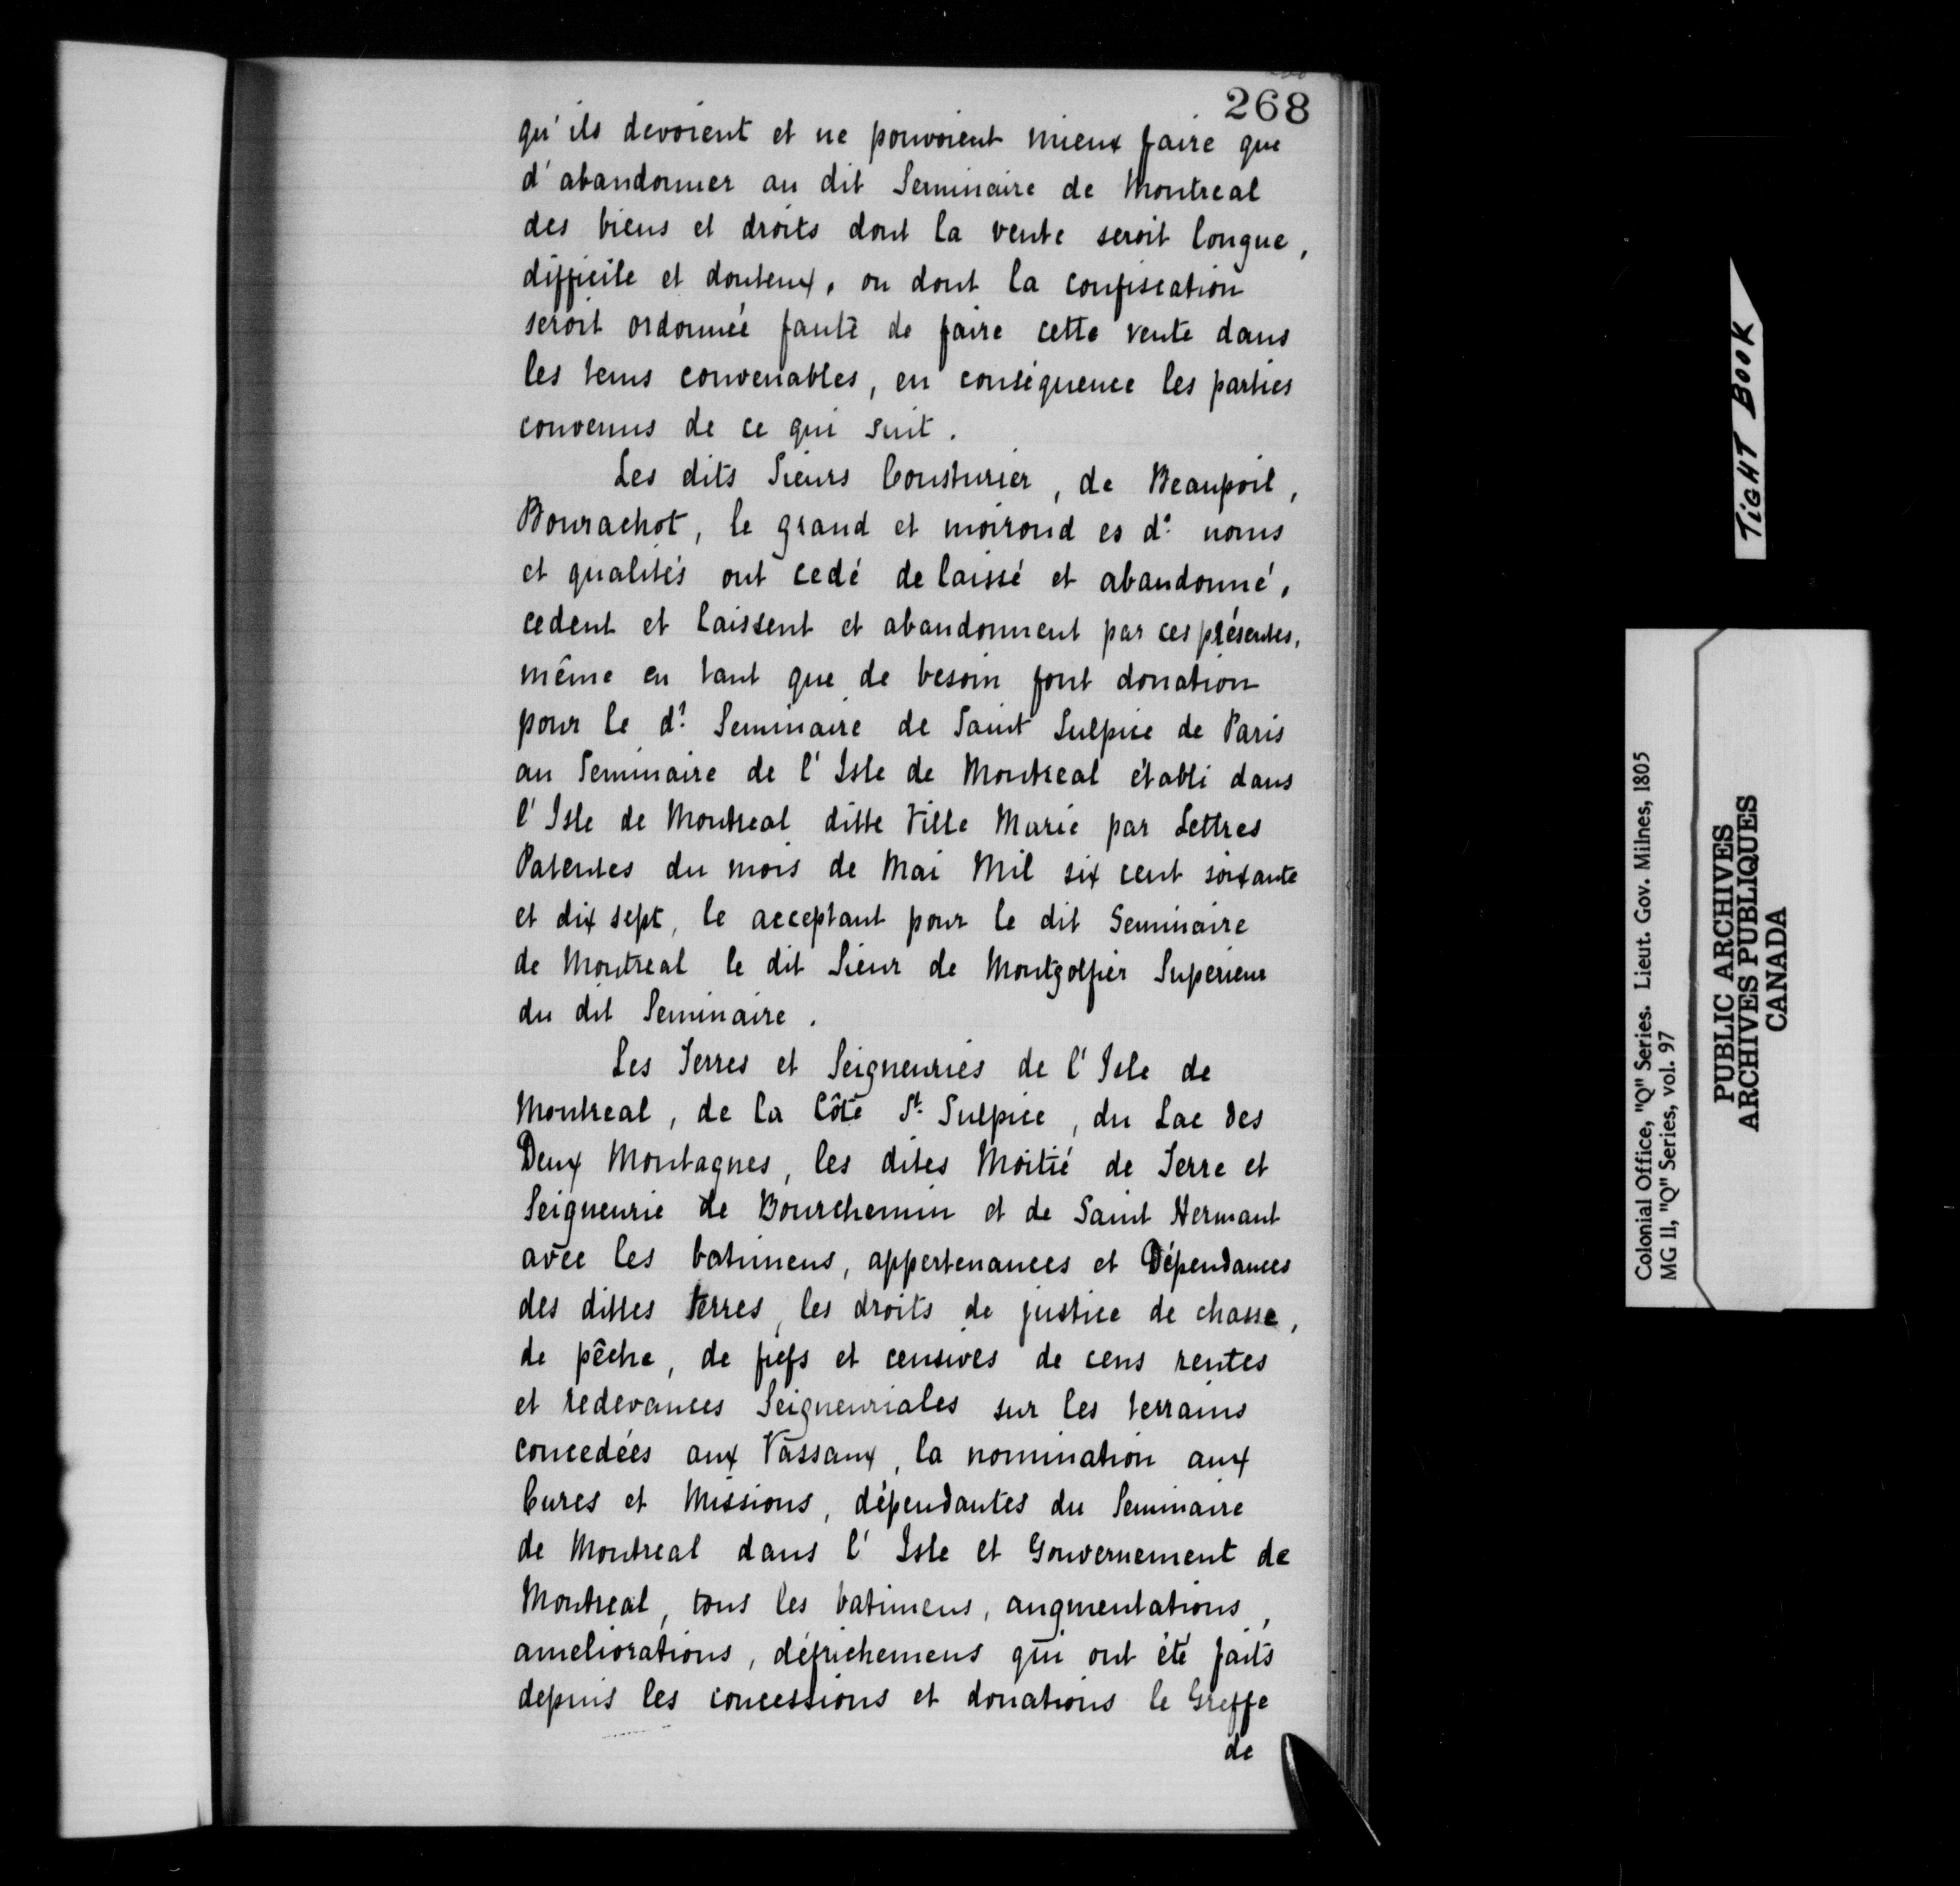 268
qu'ils devoient et ne pouvoient mieux faire que
d'abandonner au dit Seminaire de Montreal
des biens et droits dont la vente seroit longue,
difficile et douteux, ou dont la confiscation
seroit ordonnée faute de faire cette vente dans
les tems convenables, en conséquence les parties
convenus de ce qui suit.
Les dits Sieurs Cousturier, de Beaupoil,
Bourachot, le grand et moirond es d. noms
et qualités ont cedé delaissé et abandonné,
cedent et laissent et abandonnent par ces présentes,
même en tant que de besoin font donation
pour le dt Seminaire de Saint Sulpice de Paris
au Seminaire de l'Isle de Montreal établi dans
l'Isle de Montreal ditte Ville Marie par Lettres
Patentes du mois de Mai Mil six cent soixante
et dix sept, le acceptant pour le dit Seminaire
de Montreal le dit Sieur de Montgolfier Superieur
du dit Seminaire.
Les Terres et Seigneuries de l'Isle de
Montreal, de la Côte St. Sulpice, du Lac des
Deux Montagnes, les dites Moitié de Terre et
Seigneurie de Bourchemin et de Saint Hermant
avec les batimens, appertenances et Dépendances
des dittes terres, les droits de justice de chasse,
de pêche, de fiefs et censives de cens rentes
et redevances Seigneuriales sur les terrains
concedées aux Vassaux, la nomination aux
Cures et Missions, dépendantes du Seminaire
de Montreal dans l'Isle et Gouvernement de
Montreal, tous les batimens, augmentations,
ameliorations, défrichemens qui ont été faits
depuis les concessions et donations le Greffe
de
TIGHT BOOK
Colonial Office, "Q" Series. Lieut. Gov. Milnes, 1805
MG 11, "Q" Series, vol. 97
PUBLIC ARCHIVES
ARCHIVES PUBLIQUES
CANADA